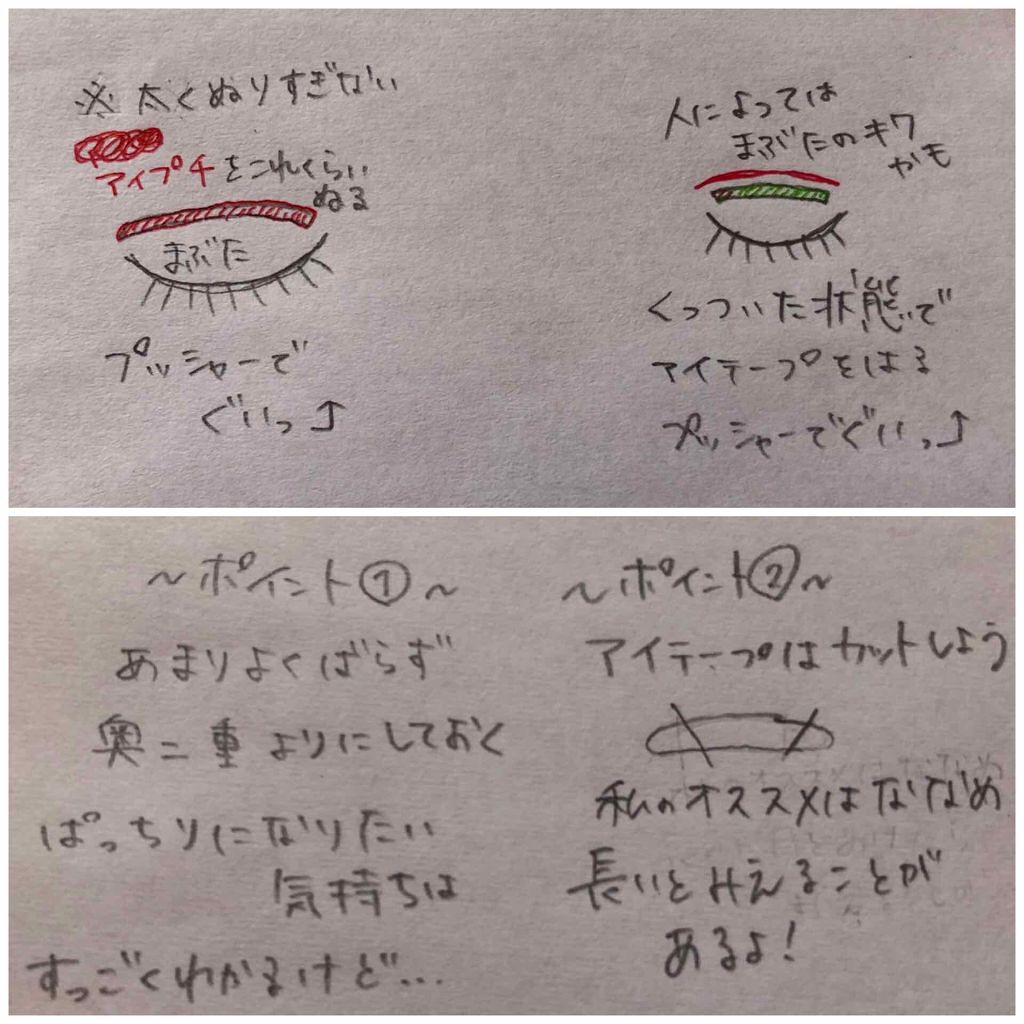 ※太くぬりすぎない
アイプチをこれくらい
ぬる
まぶた
プッシャーで
ぐいっ⤴
人によっては
まぶたのキワ
かも
くっついた状態で
アイテープをはる
プッシャーでぐいっ⤴
~ポイント①~
あまりよくばらず
奥二重よりにしておく
ぱっちりになりたい
気持ちは
すっごくわかるけど…
~ポイント②~
アイテープはカットしよう
私のオススメはななめ
長いとみえることが
あるよ!